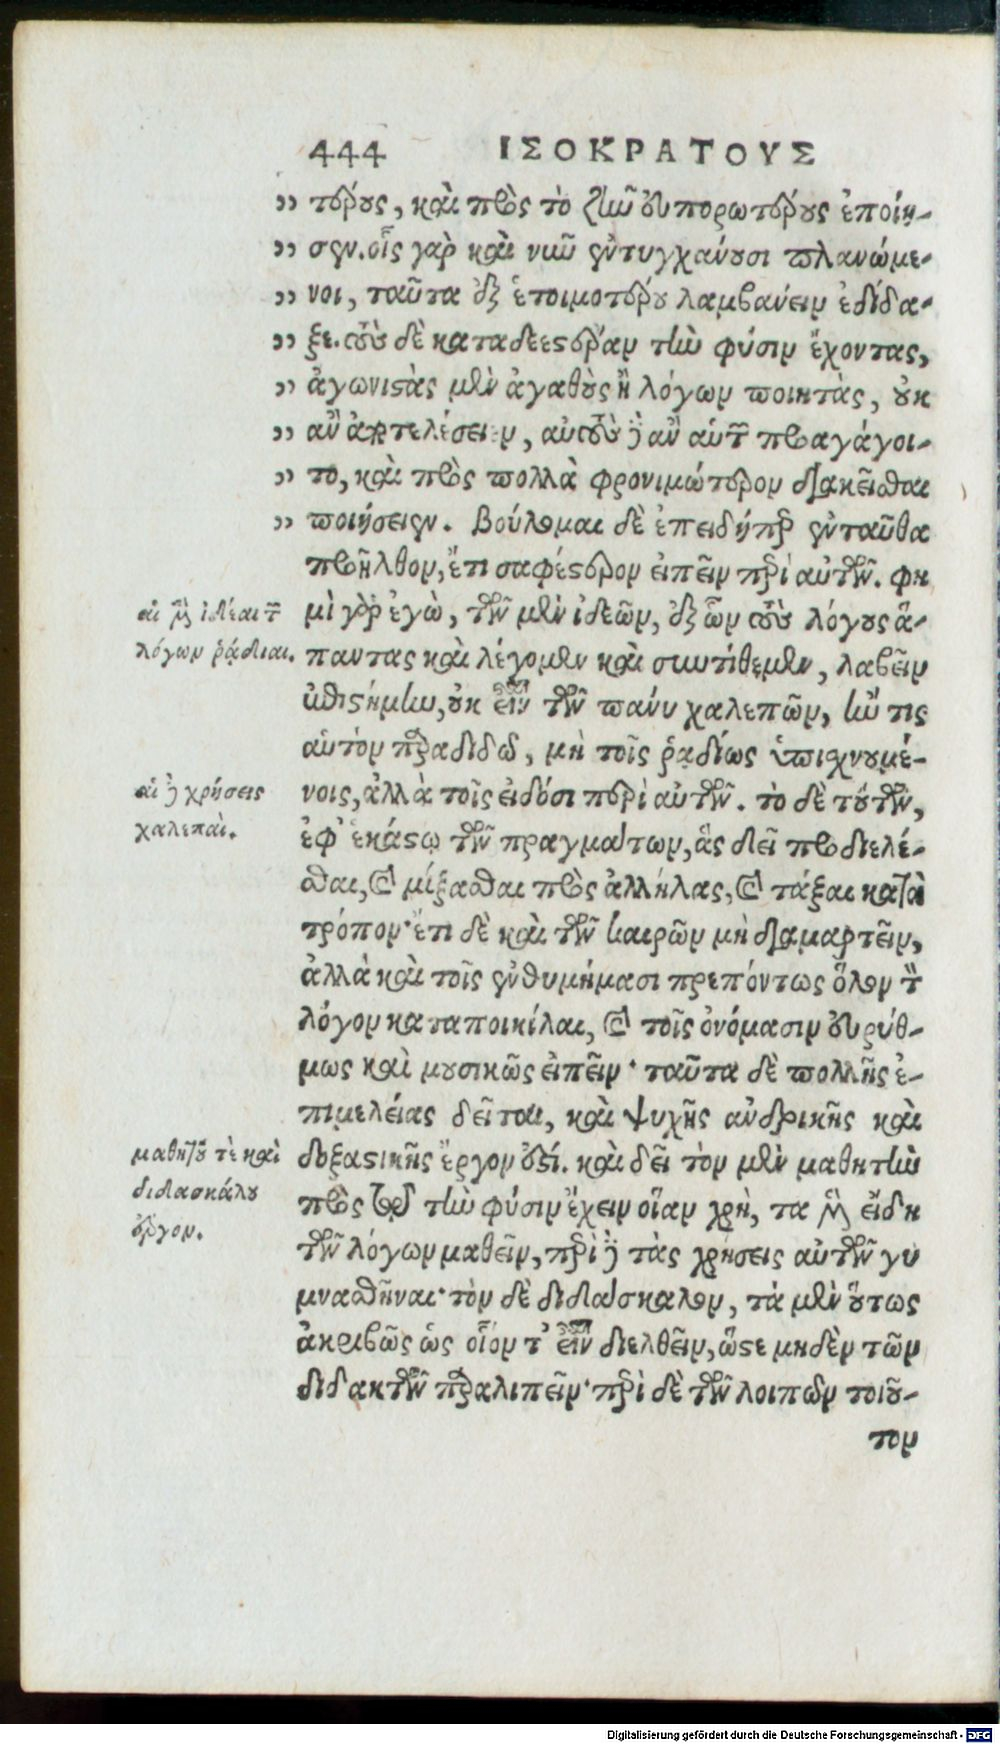 444 ΙΣΟΚΡΑΤΟΥΣ
„ τέρους, καὶ πρὸς τὸ ζῆν εὐπορωτέρους ἐποίη-
„ σεν. οἷς γὰρ καὶ νῦν ἐντυγχάνουσι πλανώμε-
„ νοι, ταῦτα ἐξ ἑτοιμοτέρου λαμβάνειν ἐδίδα-
„ ξε. τοὺς δὲ καταδεεστέραν τὴν φύσιν ἔχοντας,
„ ἀγωνιστὰς μὲν ἀγαθοὺς ἢ λόγων ποιητὰς, οὐκ
„ ἂν ἀποτελέσειεν, αὐτοὺς δ' ἂν αὑτῶν προαγάγοι-
„ το, καὶ πρὸς πολλὰ φρονιμώτερον διακεῖσθαι
„ ποιήσειεν. Βούλομαι δὲ ἐπειδήπερ ἐνταῦθα
προῆλθον, ἔτι σαφέστερον εἰπεῖν περὶ αὐτῶν. φη
μὶ γὰρ ἐγὼ, τῶν μὲν ἰδεῶν, ἐξ ὧν τοὺς λόγους ἅ-
παντας καὶ λέγομεν καὶ συντίθεμεν, λαβεῖν
ἐπιστήμην, οὐκ εἶναι τῶν πάνυ χαλεπῶν, ἤν τις
αὑτὸν παραδιδῷ, μὴ τοῖς ῥᾳδίως ὑπισχνουμέ-
νοις, ἀλλὰ τοῖς εἰδόσι περὶ αὐτῶν. τὸ δὲ τούτων,
ἐφ' ἑκάστῳ τῶν πραγμάτων, ἃς δεῖ προδιελέ-
σθαι, καὶ μίξασθαι πρὸς ἀλλήλας, καὶ τάξαι κατὰ
τρόπον· ἔτι δὲ καὶ τῶν καιρῶν μὴ διαμαρτεῖν,
ἀλλὰ καὶ τοῖς ἐνθυμήμασι πρεπόντως ὅλον τὸν
λόγον καταποικίλαι, καὶ τοῖς ὀνόμασιν εὐρύθ-
μως καὶ μουσικῶς εἰπεῖν· ταῦτα δὲ πολλῆς ἐ-
πιμελείας δεῖται, καὶ ψυχῆς ἀνδρικῆς καὶ
δοξαστικῆς ἔργον ἐστί. καὶ δεῖ τὸν μὲν μαθητὴν
πρὸς τῷ τὴν φύσιν ἔχειν οἵαν χρὴ, τὰ μὲν εἴδη
τῶν λόγων μαθεῖν, περὶ δὲ τὰς χρήσεις αὐτῶν γυ
μνασθῆναι· τὸν δὲ διδάσκαλον, τὰ μὲν οὕτως
ἀκριβῶς ὡς οἷόν τ' εἶναι διελθεῖν, ὥστε μηδὲν τῶν
διδακτῶν παραλιπεῖν· περὶ δὲ τῶν λοιπῶν τοιοῦ-
τον
αἱ μὲν ἰδέαι τῶν
λόγων ῥᾴδιαι.
αἱ δὲ χρήσεις
χαλεπαὶ.
μαθητοῦ τὲ καὶ
διδασκάλου
ἔργον.
Digitalisierung gefördert durch die Deutsche Forschungsgemeinschaft - DFG